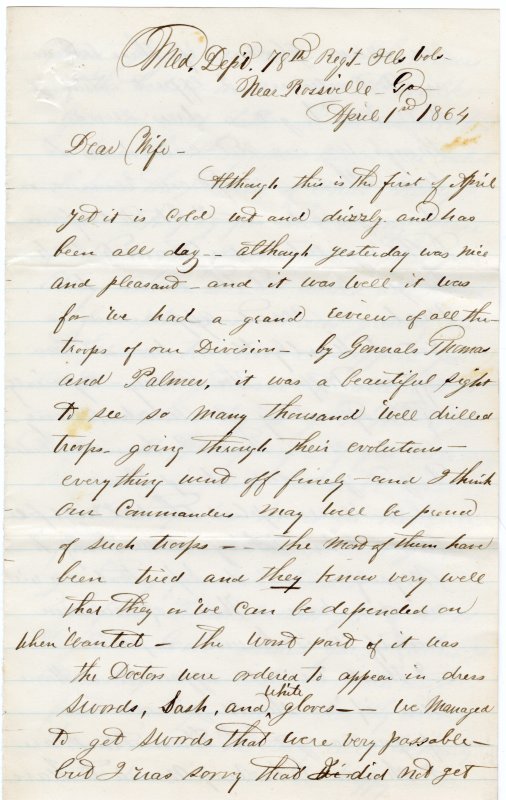 Med. Dept. 78th Regt Ills Vols
Near Rossville - Ga
April 1st 1864
Dear Wife -
Although this is the first of April
yet it is cold wet and drizzly and has
been all day -- although yesterday was nice
and pleasant - and it was well it was
for we had a grand review of all the
troops of our Division - by Generals Thomas
and Palmer, it was a beautiful sight
to see so many thousand well drilled
troops - going through their evolutions -
everything went off finely - and I think
our Commanders may well be proud
of such troops -- The most of them have
been tried and they know very well
that they or we can be depended on
when wanted - The worst part of it was
the Doctors were ordered to appear in dress
swords, Sash, and white gloves -- we managed
to get swords that were very passable -
but I was sorry that did not get